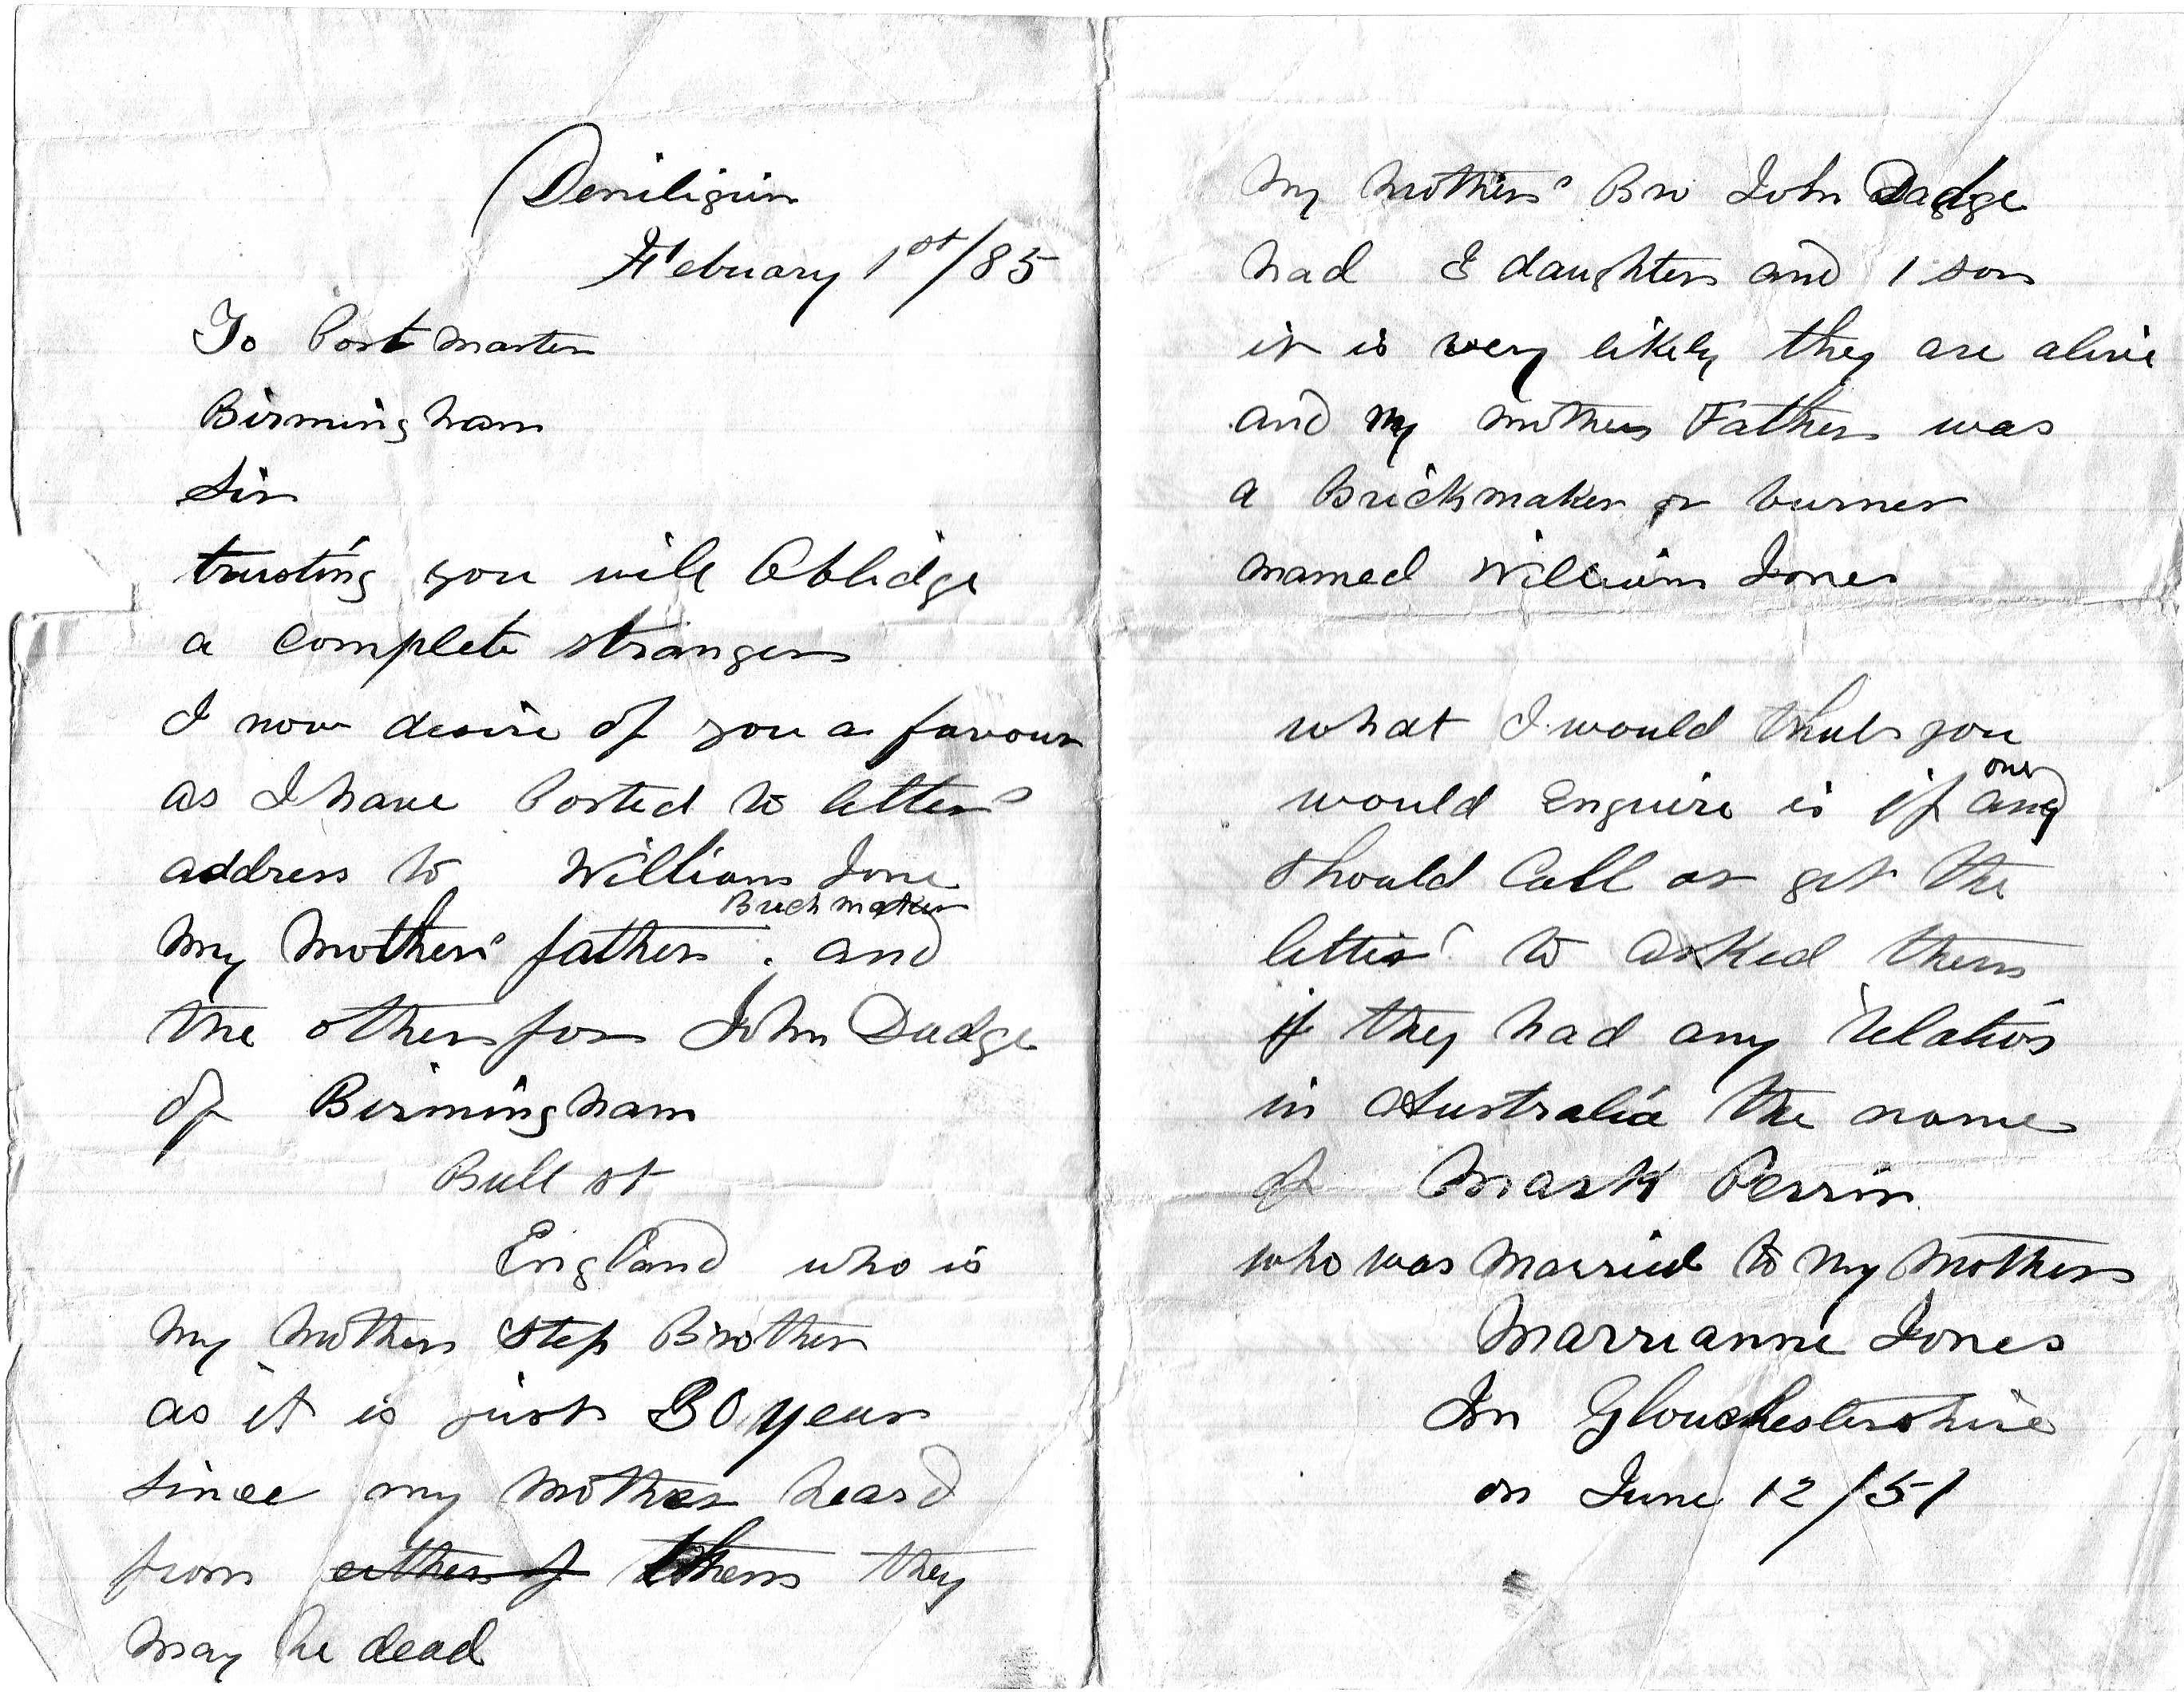 Deniliquin
Febuary 1st/85
To Post master
Birmingham
Sir
trusting you will Oblidge
a complete stranger
I now desire of you a favour
as I have Posted to letters
address to William Jone
Brickmaker
My Mothers' father . and
the other for John Dudge
of Birmingham
Bull st
England who is
My Mothers Step Brother
as it is just 30 year
since my Mother heard
from either of them they
may be dead
My Mothers' Bro John Dadge
had daughters and 1 son
it is very likely they are alive
and my mothers Father was
a Brickmaker or burner
named William Jones
what I would that you
one
would Enquire is if any
should Call or get the
letters to asked them
if they had any relatios
in Australia the name
of Mark Perrin
who was Married to My Mother
Marrianne Jones
In Glouchestershire
on June 12/51